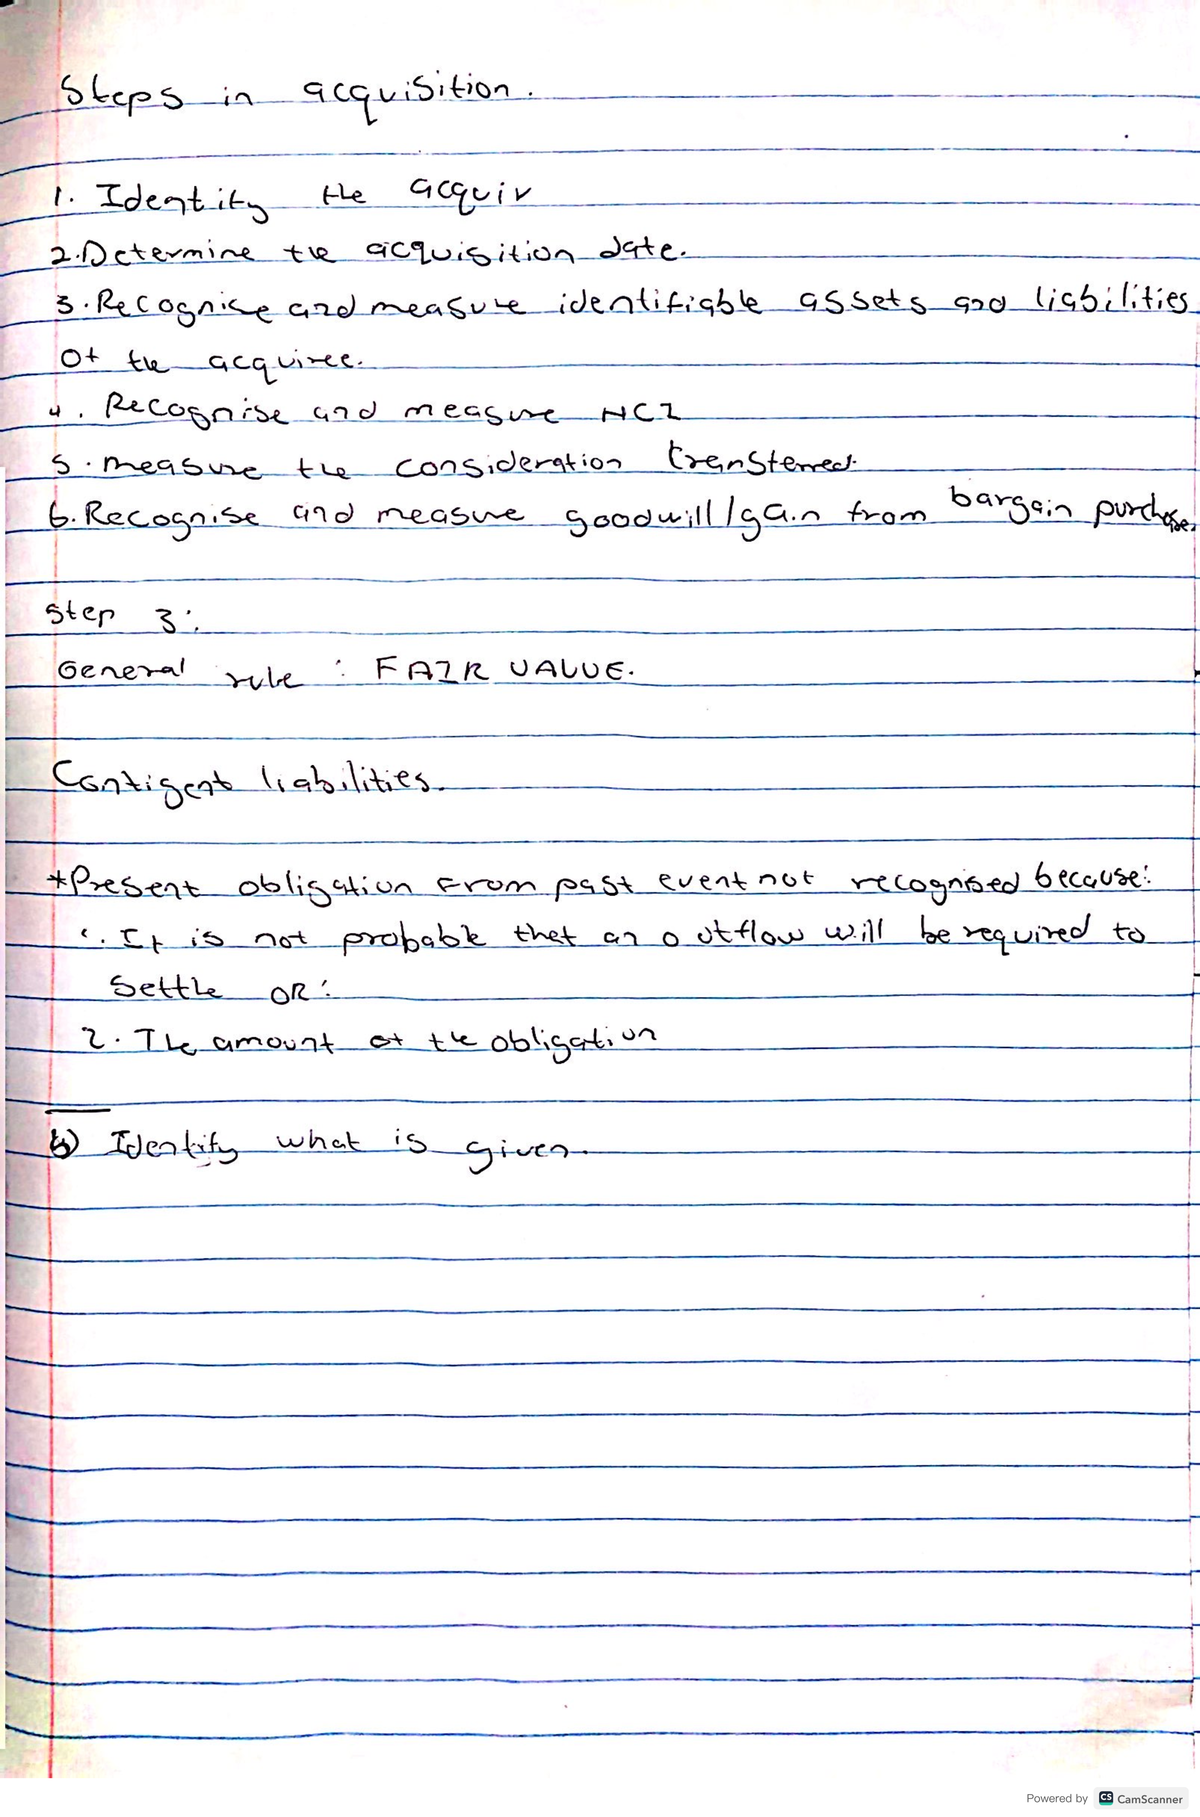 Steps in acquisition.
1. Identify the acquir
2. Determine the acquisition date.
3. Recognise and measure identifiable assets and liabilities
of the acquiree.
4. Recognise and measure NCI
5. measure the consideration transferred.
6. Recognise and measure goodwill/gain from bargain purchase.
Step 3:
General rule : FAIR VALUE.
Contigent liabilities.
*Present obligation from past event not recognised because:
1. It is not probable that an outflow will be required to
settle OR:
2. The amount of the obligation
Identify what is given.
Powered by CS CamScanner